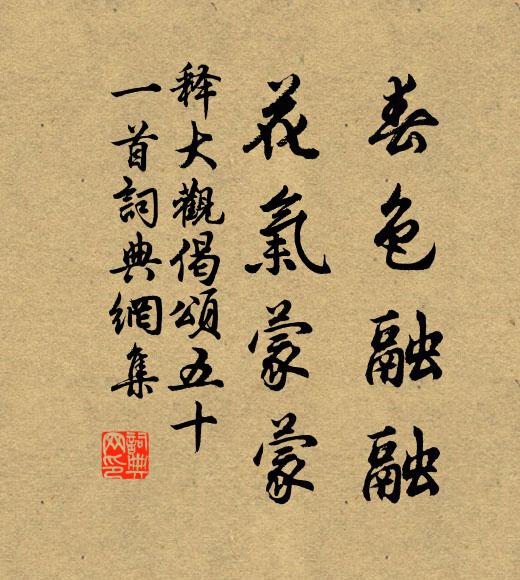 春色融融
花氣蒙蒙
释大觀偈頌五十
一首詞典網集
詞典網印